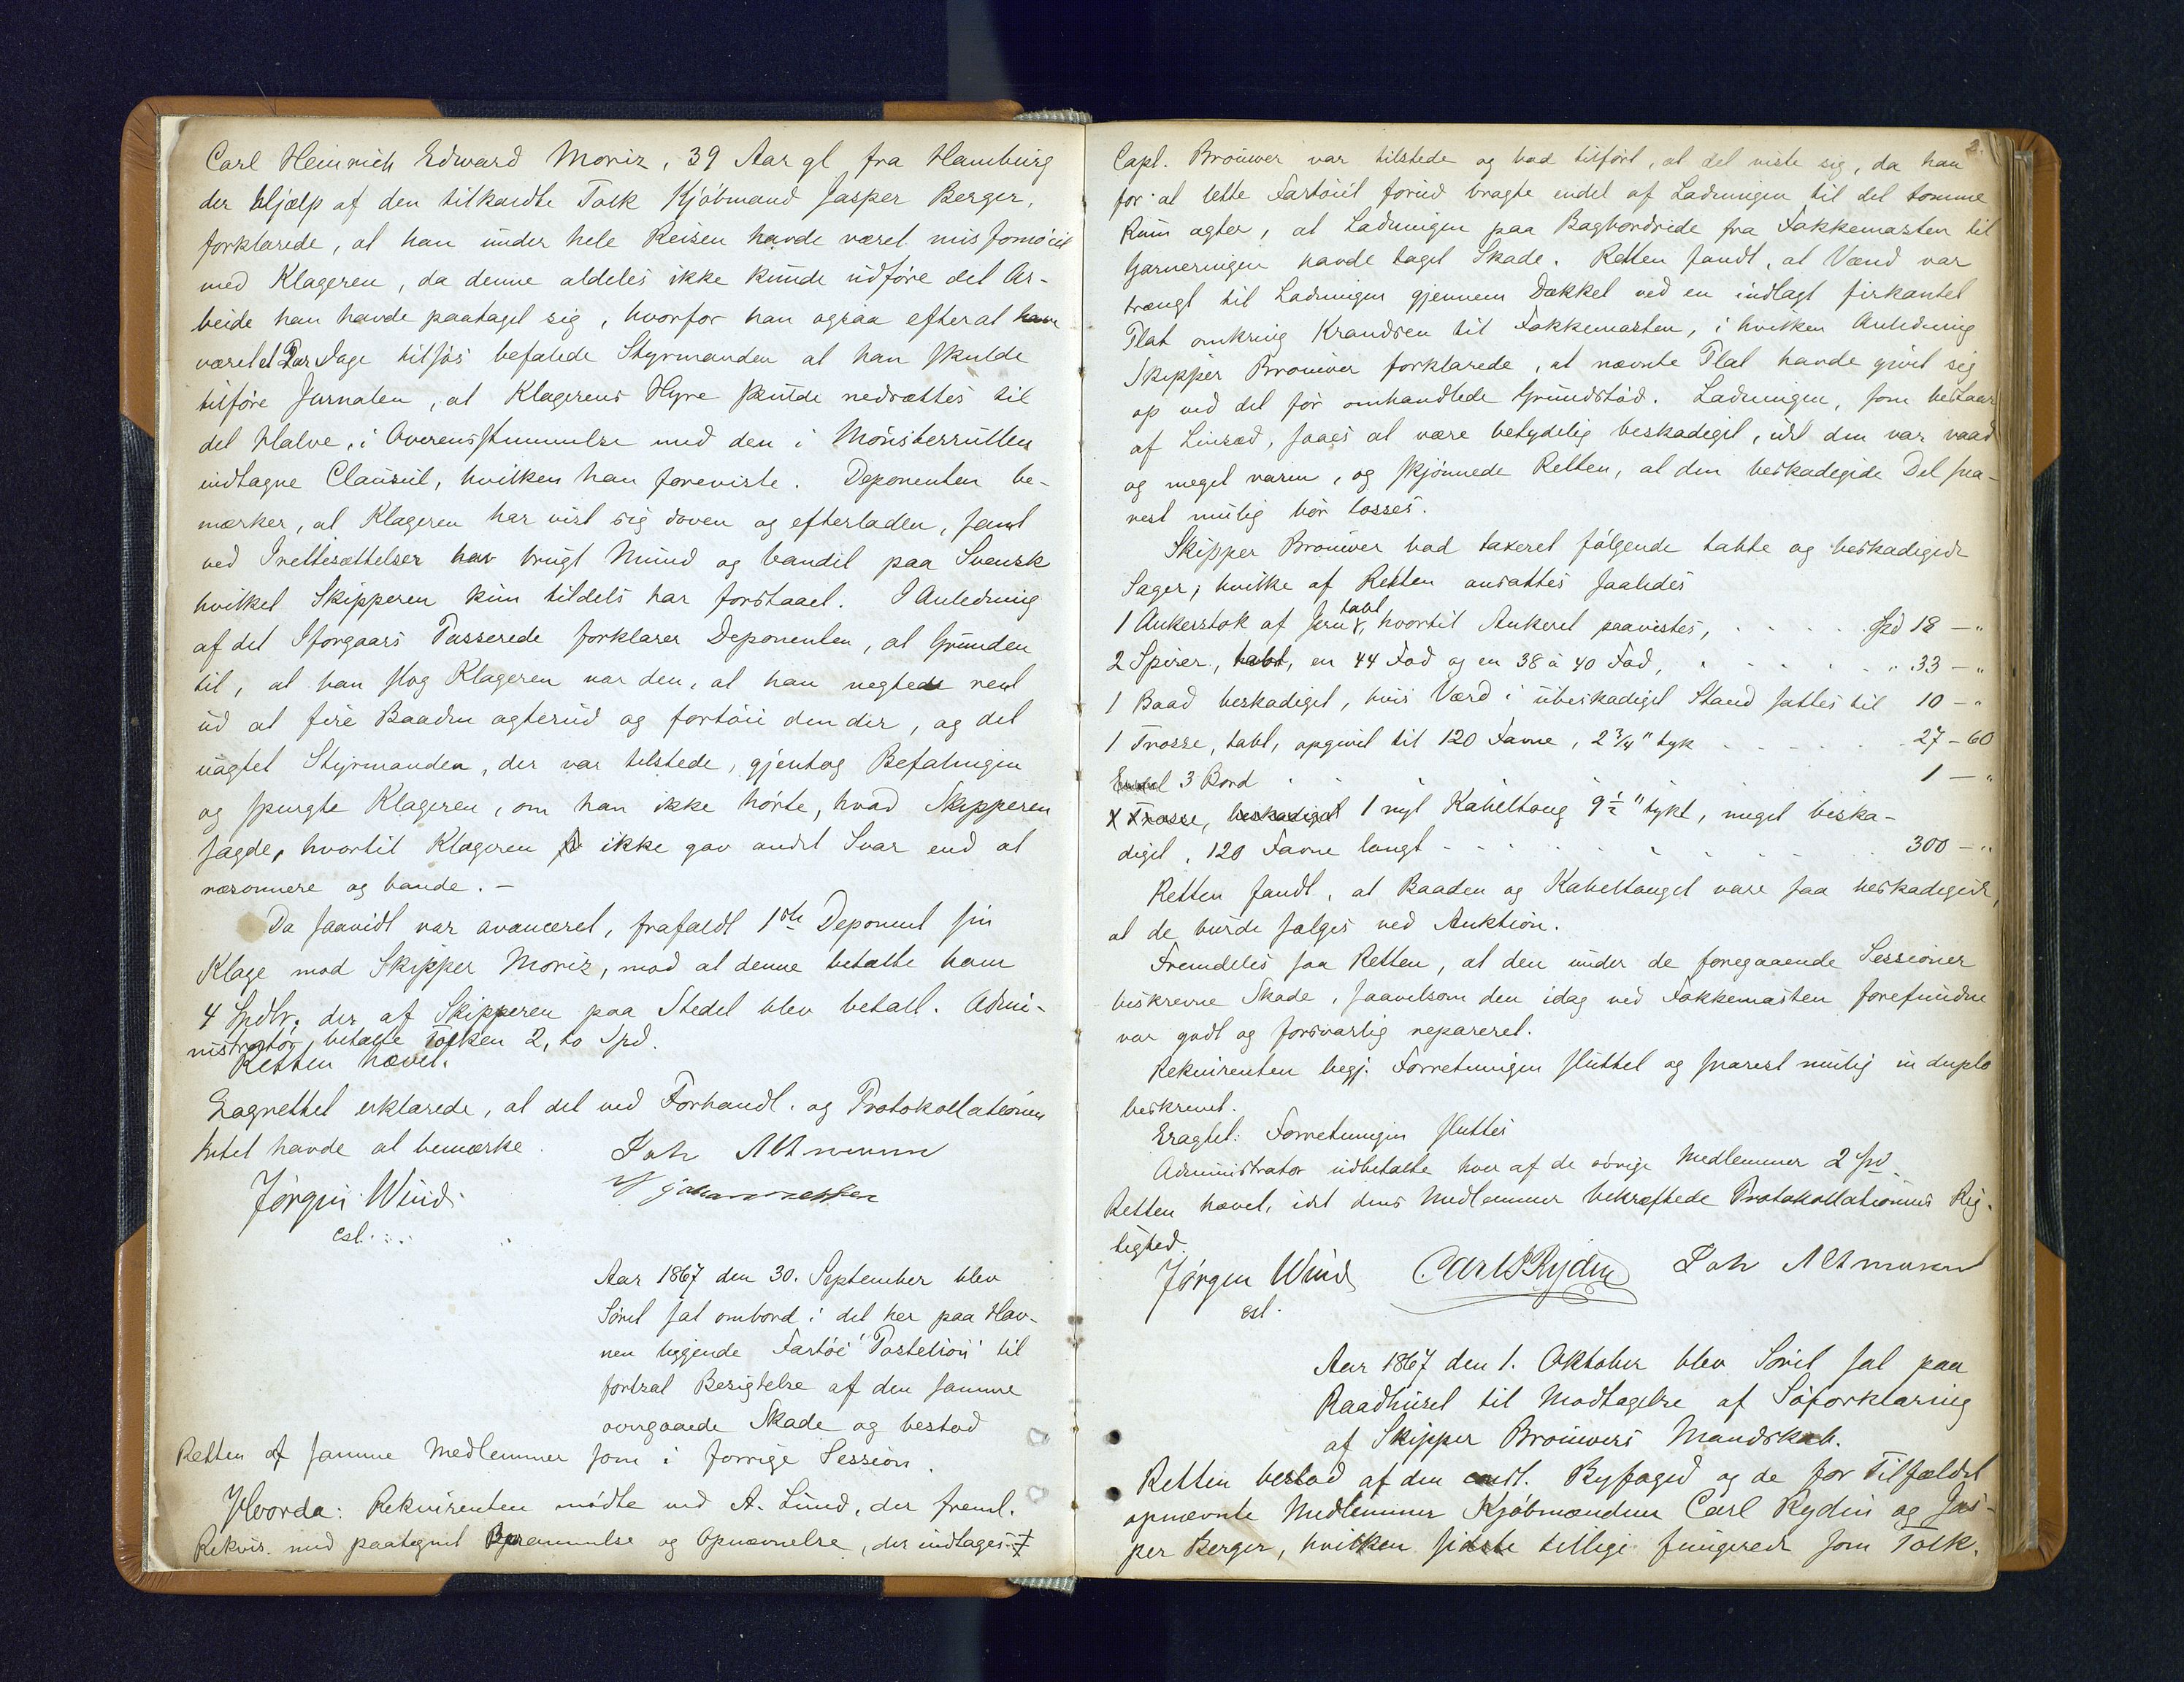 Carl Heinrich Edward Moriz, 39 Aar gl fra Hamburg
der Hjælp af den tilkaldte Tolk Kjøbmand Jasper Berger,
forklarede, at han under hele Reisen havde været misfornøiet
med Klageren, da denne aldeles ikke kunde udføre det Ar-
beide han havde paataget sig, hvorfor han ogsaa efterat have
været et Par Dage tilsøs befalede Styrmanden at han skulde
tilføre Jurnalen, at Klagerens Hyre skulde nedsættes til
det Halve, i Overensstemmelse med den i Mønsterrullen
indtagne Clausul, hvilken han foreviste. Deponenten be-
mærker, at Klageren har vist sig doven og efterladen, samt
ved Irettesættelser har brugt Mund og bandet paa Svensk
hvilket Skipperen kun tildels har forstaaet. I Anledning
af det Iforgaars Passerede forklarer Deponenten, at Grunden
til, at han slog Klageren var den, at han negtede rent
ud at fire Baaden agterud og fortøie den der, og det
uagtet Styrmanden, der var tilstede, gjentog Befalingen
og spurgte Klageren, om han ikke hørte, hvad Skipperen
sagde, hvortil Klageren ikke gav andet Svar end at
ræsonnere og bande. —
Da saavidt var avanceret, frafaldt 1ste Deponent sin
Klage mod Skipper Moriz, mod at denne betalte ham
4 Spdlr. der af Skipperen paa Stedet blev betalt. Admi-
nistrator betalte Tolken 2, to Spd.
Retten hævet.
Lagrettet erklærede, at det ved Forhandl. og Protokollationen
Intet havde at bemærke. Joh Altmann
Jørgen Wind Johannessen
cst.
Aar 1867 den 30. September blev
Søret sat ombord i det her paa Hav-
nen liggende Fartøi "Postelion" til
fortsat Besigtelse af den samme
overgaaede Skade og bestod
Retten af samme Medlemmer som i forrige Session.
Hvorda: Rekvirenten mødte ved A. Lund, der freml.
Rekvis. med paategnet Berammelse og Opnævnelse, der indtages ‡
2.
Capt. Brouwer var tilstede og bad tilført, at det viste sig, da han
for at lette Fartøiet forud bragte endel af Ladningen til det tomme
Rum agter, at Ladningen paa Bagbordside fra Fokkemasten til
Garneringen havde taget Skade. Retten fandt, at Vand var
trængt til Ladningen gjennem Dækket ved en indlagt firkantet
Plat omkring Krandsen til Fokkemasten, i hvilken Anledning
Skipper Brouwer forklarede, at nævnte Plat havde givet sig
op ved det før omhandlede Grundstød. Ladningen, som bestaar
af Linsæd, saaes at være betydelig beskadiget, idet den var vaad
og meget varm, og skjønnede Retten, at den beskadigede Del sna-
rest mulig bør losses.
Skipper Brouwer bad taxeret følgende tabte og beskadigede
Sager, hvilke af Retten ansattes saaledes
1 Ankerstok af Jern tabt, hvortil Ankeret paavistes, . . . . Spd 18 — "
2 Spirer, tabt, en 44 Fod og en 38 à 40 Fod, . . . . . . " 33 — "
1 Baad beskadiget, hvis Værd i ubeskadiget Stand sattes til 10 — "
1 Trosse, tabt, opgivet til 120 Favne, 2 3/4" tyk . . . . . 27 – 60
3 Bord . . . . . . . 1 — "
X Trosse, beskadiget 1 nyt Kabeltoug 9 1/2" tykt, meget beska-
diget, 120 Favne langt - . . . . . . . 300 — "
Retten fandt, at Baaden og Kabeltouget vare saa beskadigede,
at de burde sælges ved Auktion.
Fremdeles saa Retten, at den under de foregaaende Sessioner
beskrevne Skade, saavelsom den idag ved Fokkemasten forefundne
var godt og forsvarlig repareret.
Rekvirenten begj. Forretningen sluttet og snarest mulig in duplo
beskrevet.
Eragtet: Forretningen sluttes
Administrator udbetalte hver af de øvrige Medlemmer 2 Spd.
Retten hævet, idet dens Medlemmer bekræftede Protokollationens Rig-
tighed.
Jørgen Wind Carl Rydin Joh Altmann
cst.
Aar 1867 den 1. Oktober blev Søret sat paa
Raadhuset til Modtagelse af Søforklaring
af Skipper Brouwers Mandskab.
Retten bestod af den const. Byfoged og de for Tilfældet
opnævnte Medlemmer Kjøbmændene Carl Rydin og Jas-
per Berger, hvilken sidste tillige fungerede som Tolk.